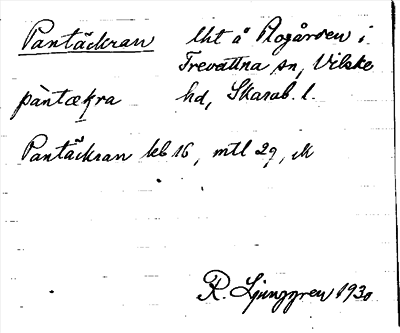 Pantäckran lht å Rogården i
Trevattna sn, Vilske
pàntækra hd, Skarab. l.
Pantäckran kb 16, mtl 29, M
R. Ljunggren 1930